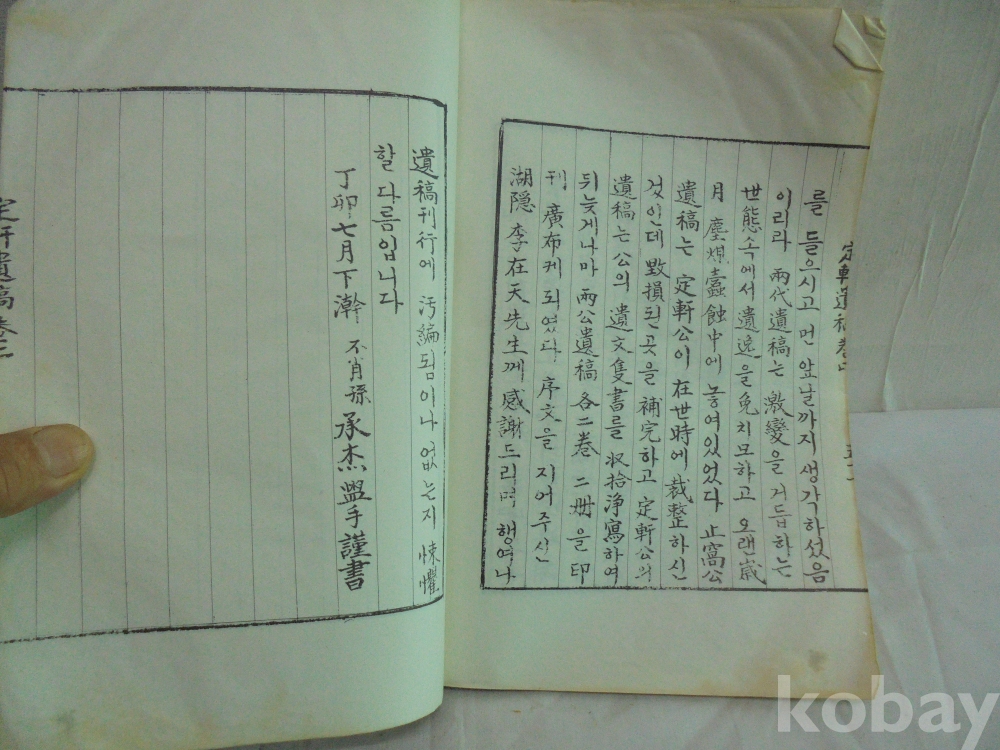 를 들으시고 먼 앞날까지 생각하셨음
이리라 兩代遺稿는 激變을 거듭하는
世態속에서 遺逸을 免치모하고 오랜歲
月 塵煤蠹蝕中에 놓여있었다 止窩公
遺稿는 定軒公이 在世時에 裁整하신
것인데 毁損된곳을 補完하고 定軒公의
遺稿는公의 遺文隻書를 収拾淨寫하여
뒤늦게나마 兩公遺稿 各二卷 二册을 印
刊 廣布케 되였다 序文을 지어주신
湖隱 李在天先生께 感謝드리며 행여나
遺稿刊行에 汚編됨이나 없는지 悚懼
할 다름입니다
丁卯七月下澣 不肖孫 承杰 盥手謹書
定軒遺稿卷二
kobay